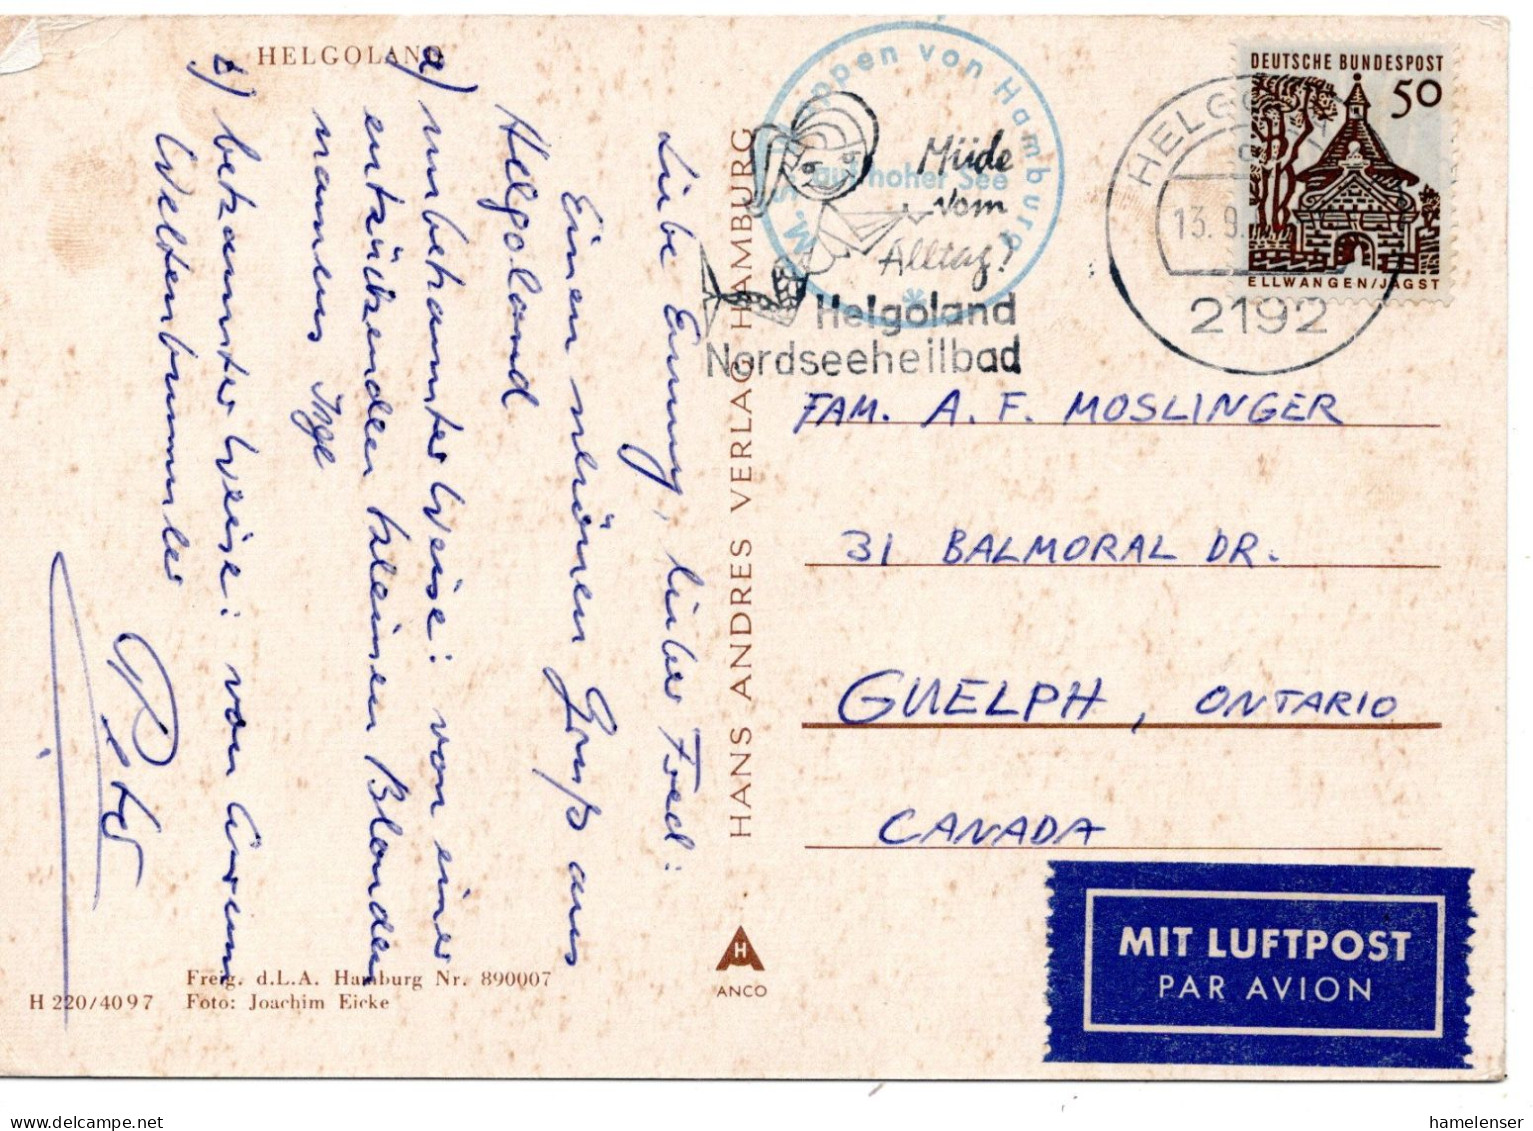 HELGOLAND
Liebe Emmy, lieber Fred:
Einen schönen Gruß aus
Helgoland
a) unbekannter Weise: von einer
entzückenden kleinen Blonden
namens Inge
b) bekannter Weise: von Eurem
Weltenbummler
Peter
Freig. d.L.A. Hamburg Nr. 890007
H 220/4097 Foto: Joachim Eicke
HANS ANDRES VERLAG, HAMBURG
H
ANCO
von Hamburg
auf hoher See
Müde
vom
Alltag?
Helgoland
Nordseeheilbad
HELGO
13. 9.
2192
DEUTSCHE BUNDESPOST
50
ELLWANGEN/JAGST
FAM. A. F. MOSLINGER
31 BALMORAL DR.
GUELPH, ONTARIO
CANADA
MIT LUFTPOST
PAR AVION
hamelenser